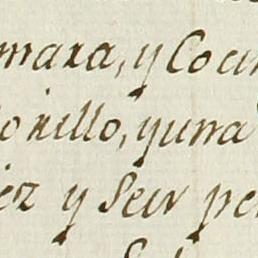 mara, y Coci
orillo, y una
iez y Seis pe